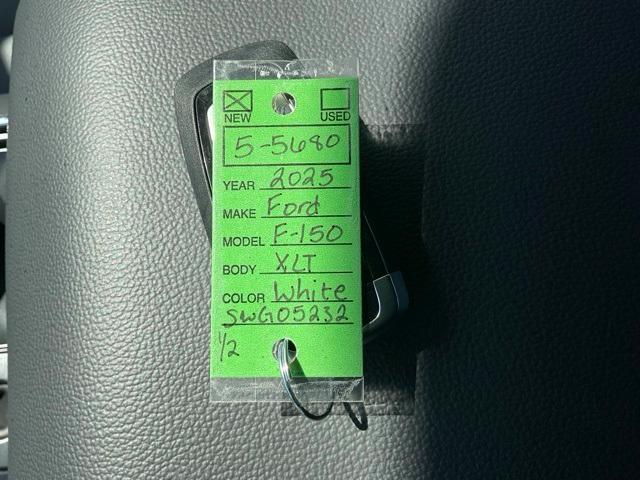 NEW USED
5-5680
YEAR 2025
MAKE Ford
MODEL F-150
BODY XLT
COLOR White
SWG05232
1/2